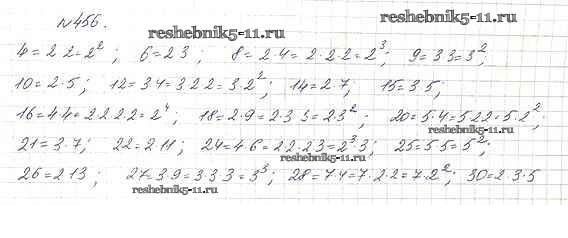 №456.
reshebnik5-11.ru
reshebnik5-11.ru
4=2·2=2²; 6=2·3; 8=2·4=2·2·2=2³; 9=3·3=3²;
10=2·5; 12=3·4=3·2·2=3·2²; 14=2·7; 15=3·5;
16=4·4=2·2·2·2=2⁴; 18=2·9=2·3·3=2·3²; 20=5·4=5·2·2=5·2²;
reshebnik5-11.ru
21=3·7; 22=2·11; 24=4·6=2·2·2·3=2³·3; 25=5·5=5²;
reshebnik5-11.ru
26=2·13; 27=3·9=3·3·3=3³; 28=7·4=7·2·2=7·2²; 30=2·3·5
reshebnik5-11.ru